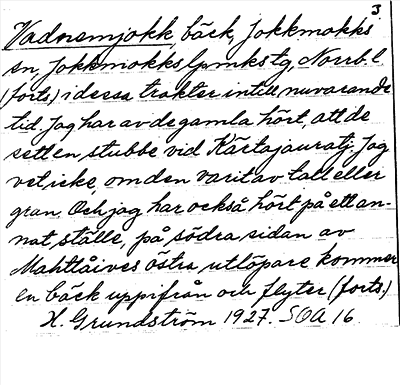 3
Vadnemjokk bäck, Jokkmokks
sn, Jokkmokks lpmkstg, Norrb. l
(forts) i dessa trakter intill nuvarande
tid. Jag har av de gamla hört, att de
sett en stubbe vid Kärtajauratj. Jag
vet icke, om den varit av tall eller
gran. Och jag har också hört på ett an-
nat ställe, på södra sidan av
Mahttåives östra utlöpare kommer
en bäck uppifrån och flyter (forts.)
H. Grundström 1927. SOA 16